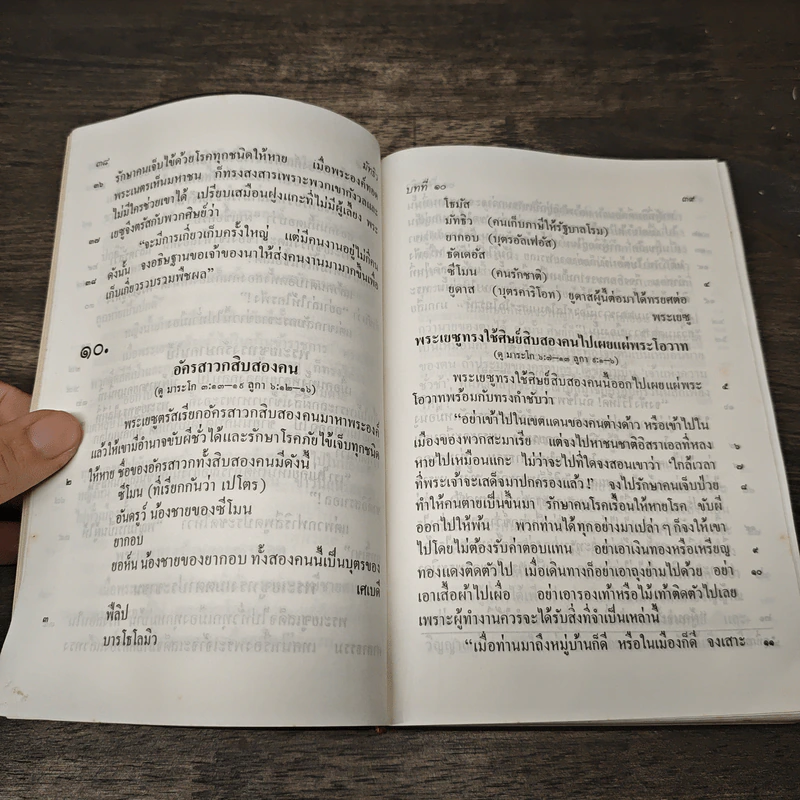 ๓๘ มัทธิว
รักษาคนเจ็บไข้ด้วยโรคทุกชนิดให้หาย เมื่อพระองค์ทอด
๓๖ พระเนตรเห็นมหาชน ก็ทรงสงสารเพราะพวกเขากังวลและ
ไม่มีใครช่วยเขาได้ เปรียบเสมือนฝูงแกะที่ไม่มีผู้เลี้ยง พระ
๓๗ เยซูจึงตรัสกับพวกศิษย์ว่า
"จะมีการเกี่ยวเก็บครั้งใหญ่ แต่มีคนงานอยู่ไม่กี่คน
๓๘ ดังนั้น จงอธิษฐานขอเจ้าของนาให้ส่งคนงานมามากขึ้นเพื่อ
เก็บเกี่ยวรวบรวมพืชผล"
๑๐.
อัครสาวกสิบสองคน
(ดู มาระโก ๓:๑๓—๑๙ ลูกา ๖:๑๒—๑๖)
พระเยซูตรัสเรียกอัครสาวกสิบสองคนมาหาพระองค์
แล้วให้เขามีอำนาจขับผีชั่วได้และรักษาโรคภัยไข้เจ็บทุกชนิด
๒ ให้หาย ชื่อของอัครสาวกทั้งสิบสองคนมีดังนี้
ซีโมน (ที่เรียกกันว่า เปโตร)
อันดรูว์ น้องชายของซีโมน
ยากอบ
ยอห์น น้องชายของยากอบ ทั้งสองคนนี้เป็นบุตรของ
เศเบดี
๓ ฟีลิป
บารโธโลมิว
บทที่ ๑๐ ๓๙
โธมัส
มัทธิว (คนเก็บภาษีให้รัฐบาลโรม)
ยากอบ (บุตรอัลเฟอัส)
ธัดเดอัส
ซีโมน (คนรักชาติ) ๔
ยูดาส (บุตรคาริโอท) ยูดาสผู้นี้ต่อมาได้ทรยศต่อ
พระเยซู
พระเยซูทรงใช้ศิษย์สิบสองคนไปเผยแผ่พระโอวาท
(ดู มาระโก ๖:๗—๑๓ ลูกา ๙:๑—๖)
พระเยซูทรงใช้ศิษย์สิบสองคนนี้ออกไปเผยแผ่พระ ๕
โอวาทพร้อมกับทรงกำชับว่า
"อย่าเข้าไปในเขตแดนของคนต่างด้าว หรือเข้าไปใน
เมืองของพวกสะมาเรีย แต่จงไปหาชนชาติอิสราเอลที่หลง ๖
หายไปเหมือนแกะ ไม่ว่าจะไปที่ใดจงสอนเขาว่า 'ใกล้เวลา ๗
ที่พระเจ้าจะเสด็จมาปกครองแล้ว!' จงไปรักษาคนเจ็บป่วย ๘
ทำให้คนตายเป็นขึ้นมา รักษาคนโรคเรื้อนให้หายโรค ขับผี
ออกไปให้พ้น พวกท่านได้ทุกอย่างมาเปล่า ๆ ก็จงให้เขา
ไปโดยไม่ต้องรับค่าตอบแทน อย่าเอาเงินทองหรือเหรียญ ๙
ทองแดงติดตัวไป เมื่อเดินทางก็อย่าเอาถุงย่ามไปด้วย อย่า ๑๐
เอาเสื้อผ้าไปเผื่อ อย่าเอารองเท้าหรือไม้เท้าติดตัวไปเลย
เพราะผู้ทำงานควรจะได้รับสิ่งที่จำเป็นเหล่านี้
"เมื่อท่านมาถึงหมู่บ้านก็ดี หรือในเมืองก็ดี จงเสาะ ๑๑